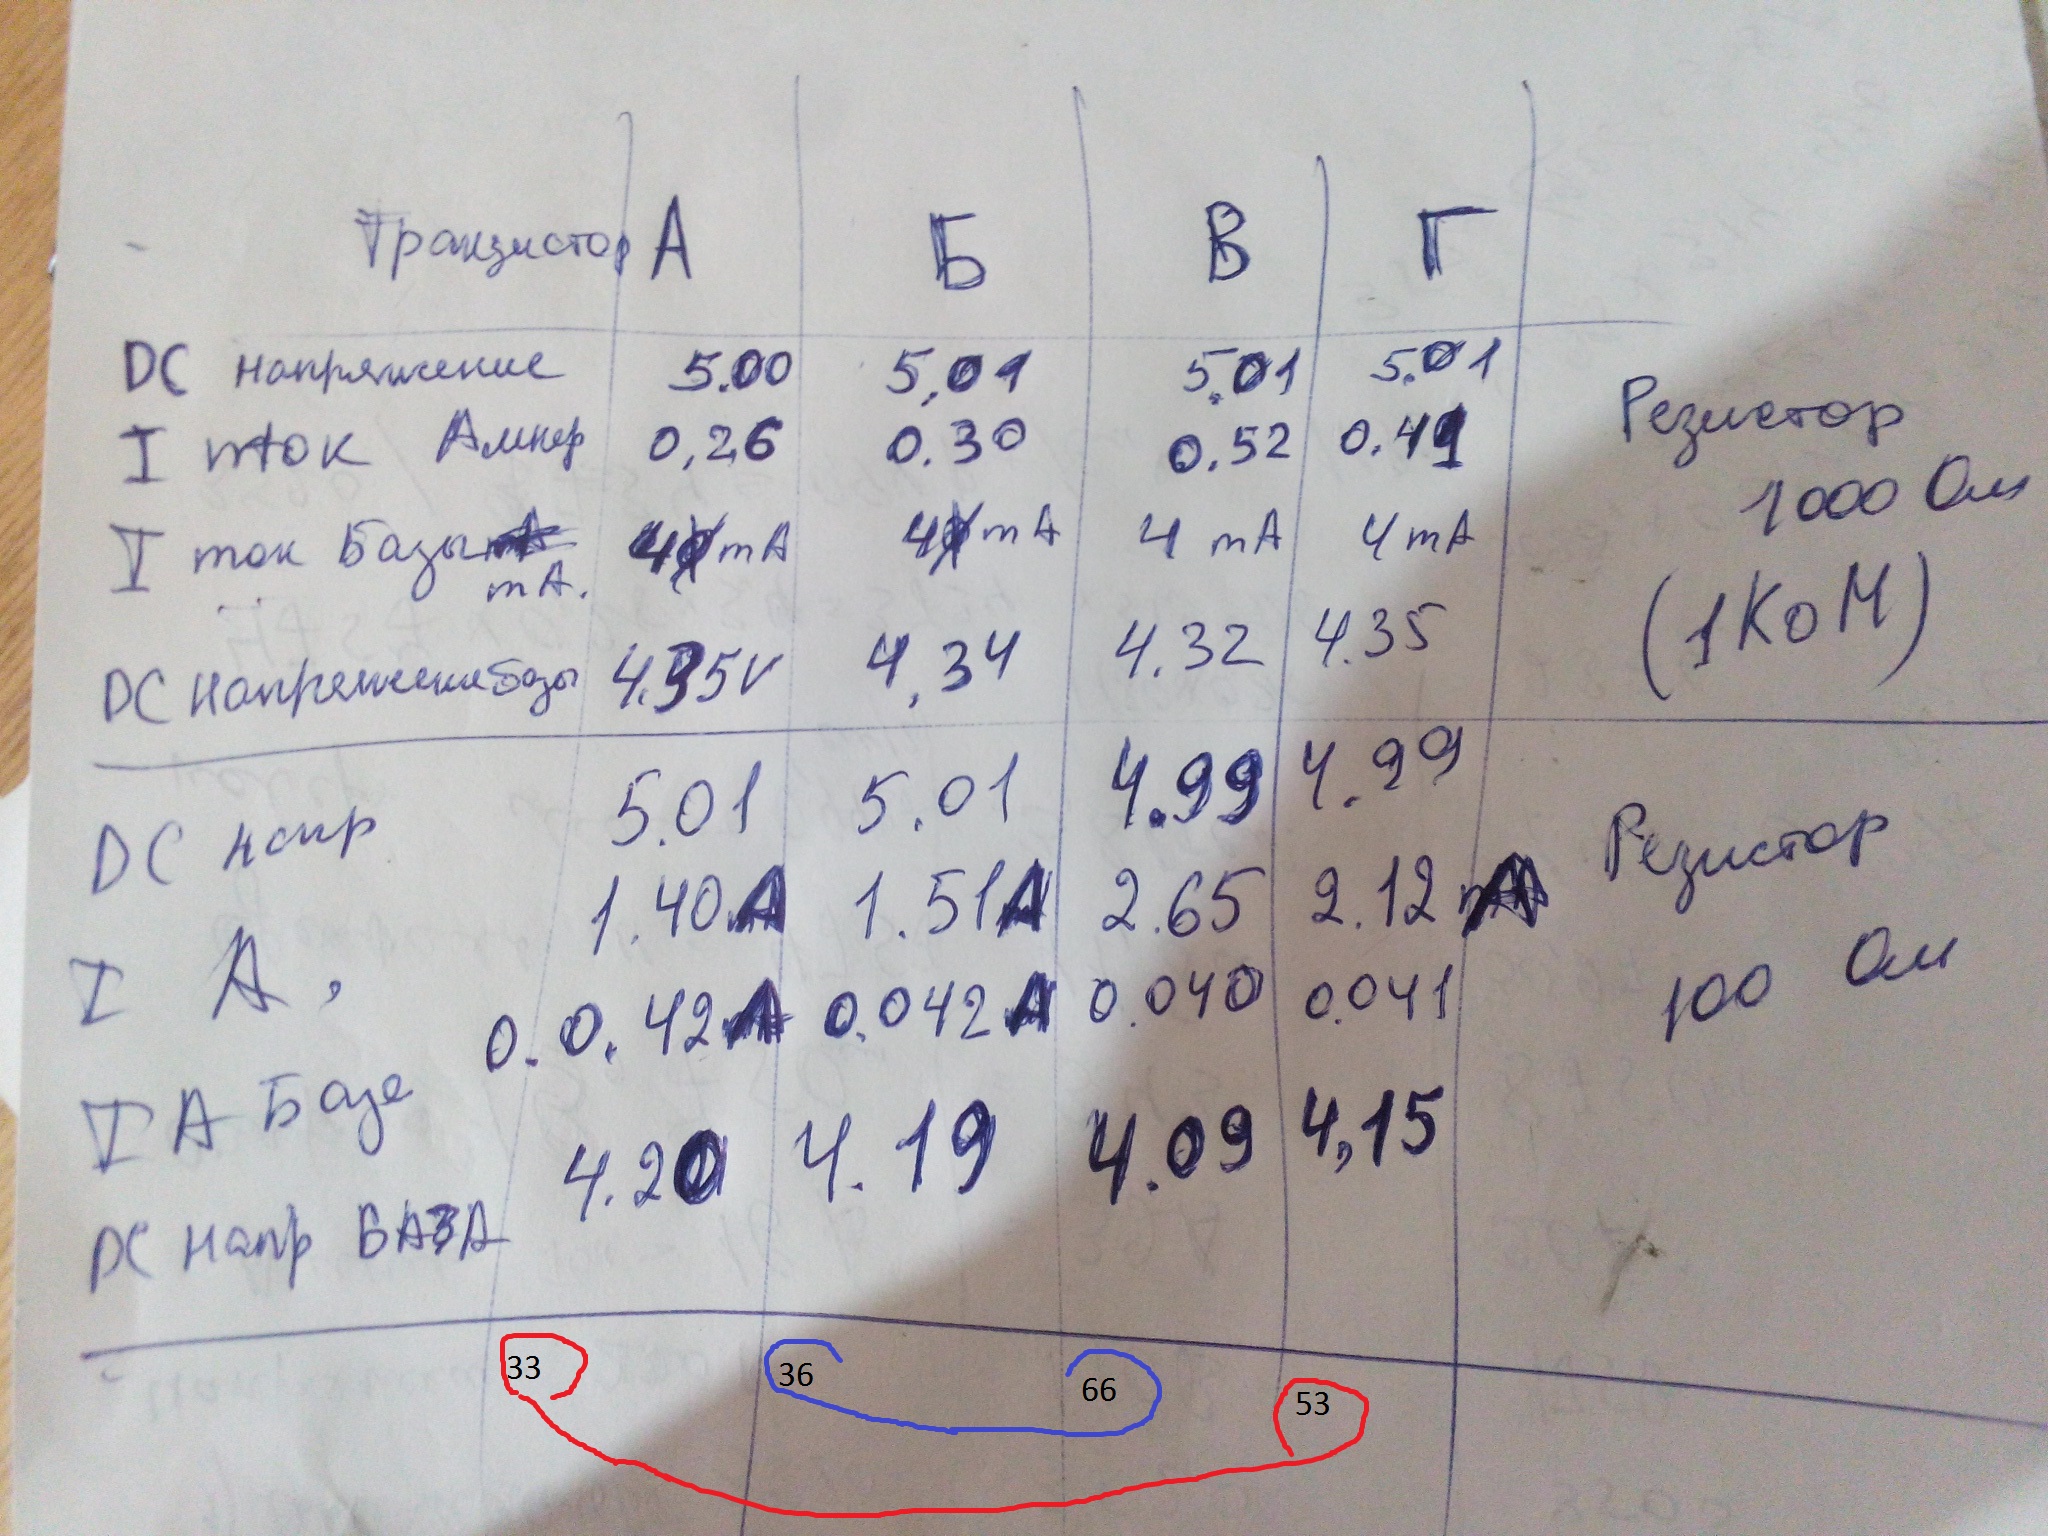 Транзистор А Б В Г
DC напряжение 5.00 5,01 5.01 5.01
I ток Ампер 0,26 0.30 0.52 0.41
Резистор
1000 Ом
(1КоМ)
I ток Базы 4 mA 4 mA 4 mA 4 mA
mA.
DC Напряжение базы 4.35V 4.34 4.32 4.35
DC напр 5.01 5.01 4.99 4.99
I A, 1.40A 1.51A 2.65 2.12 A
Резистор
100 Ом
I A Базе 0.0.42A 0.042A 0.040 0.041
DC Напр БАЗА 4.20 4.19 4.09 4,15
33 36 66 53